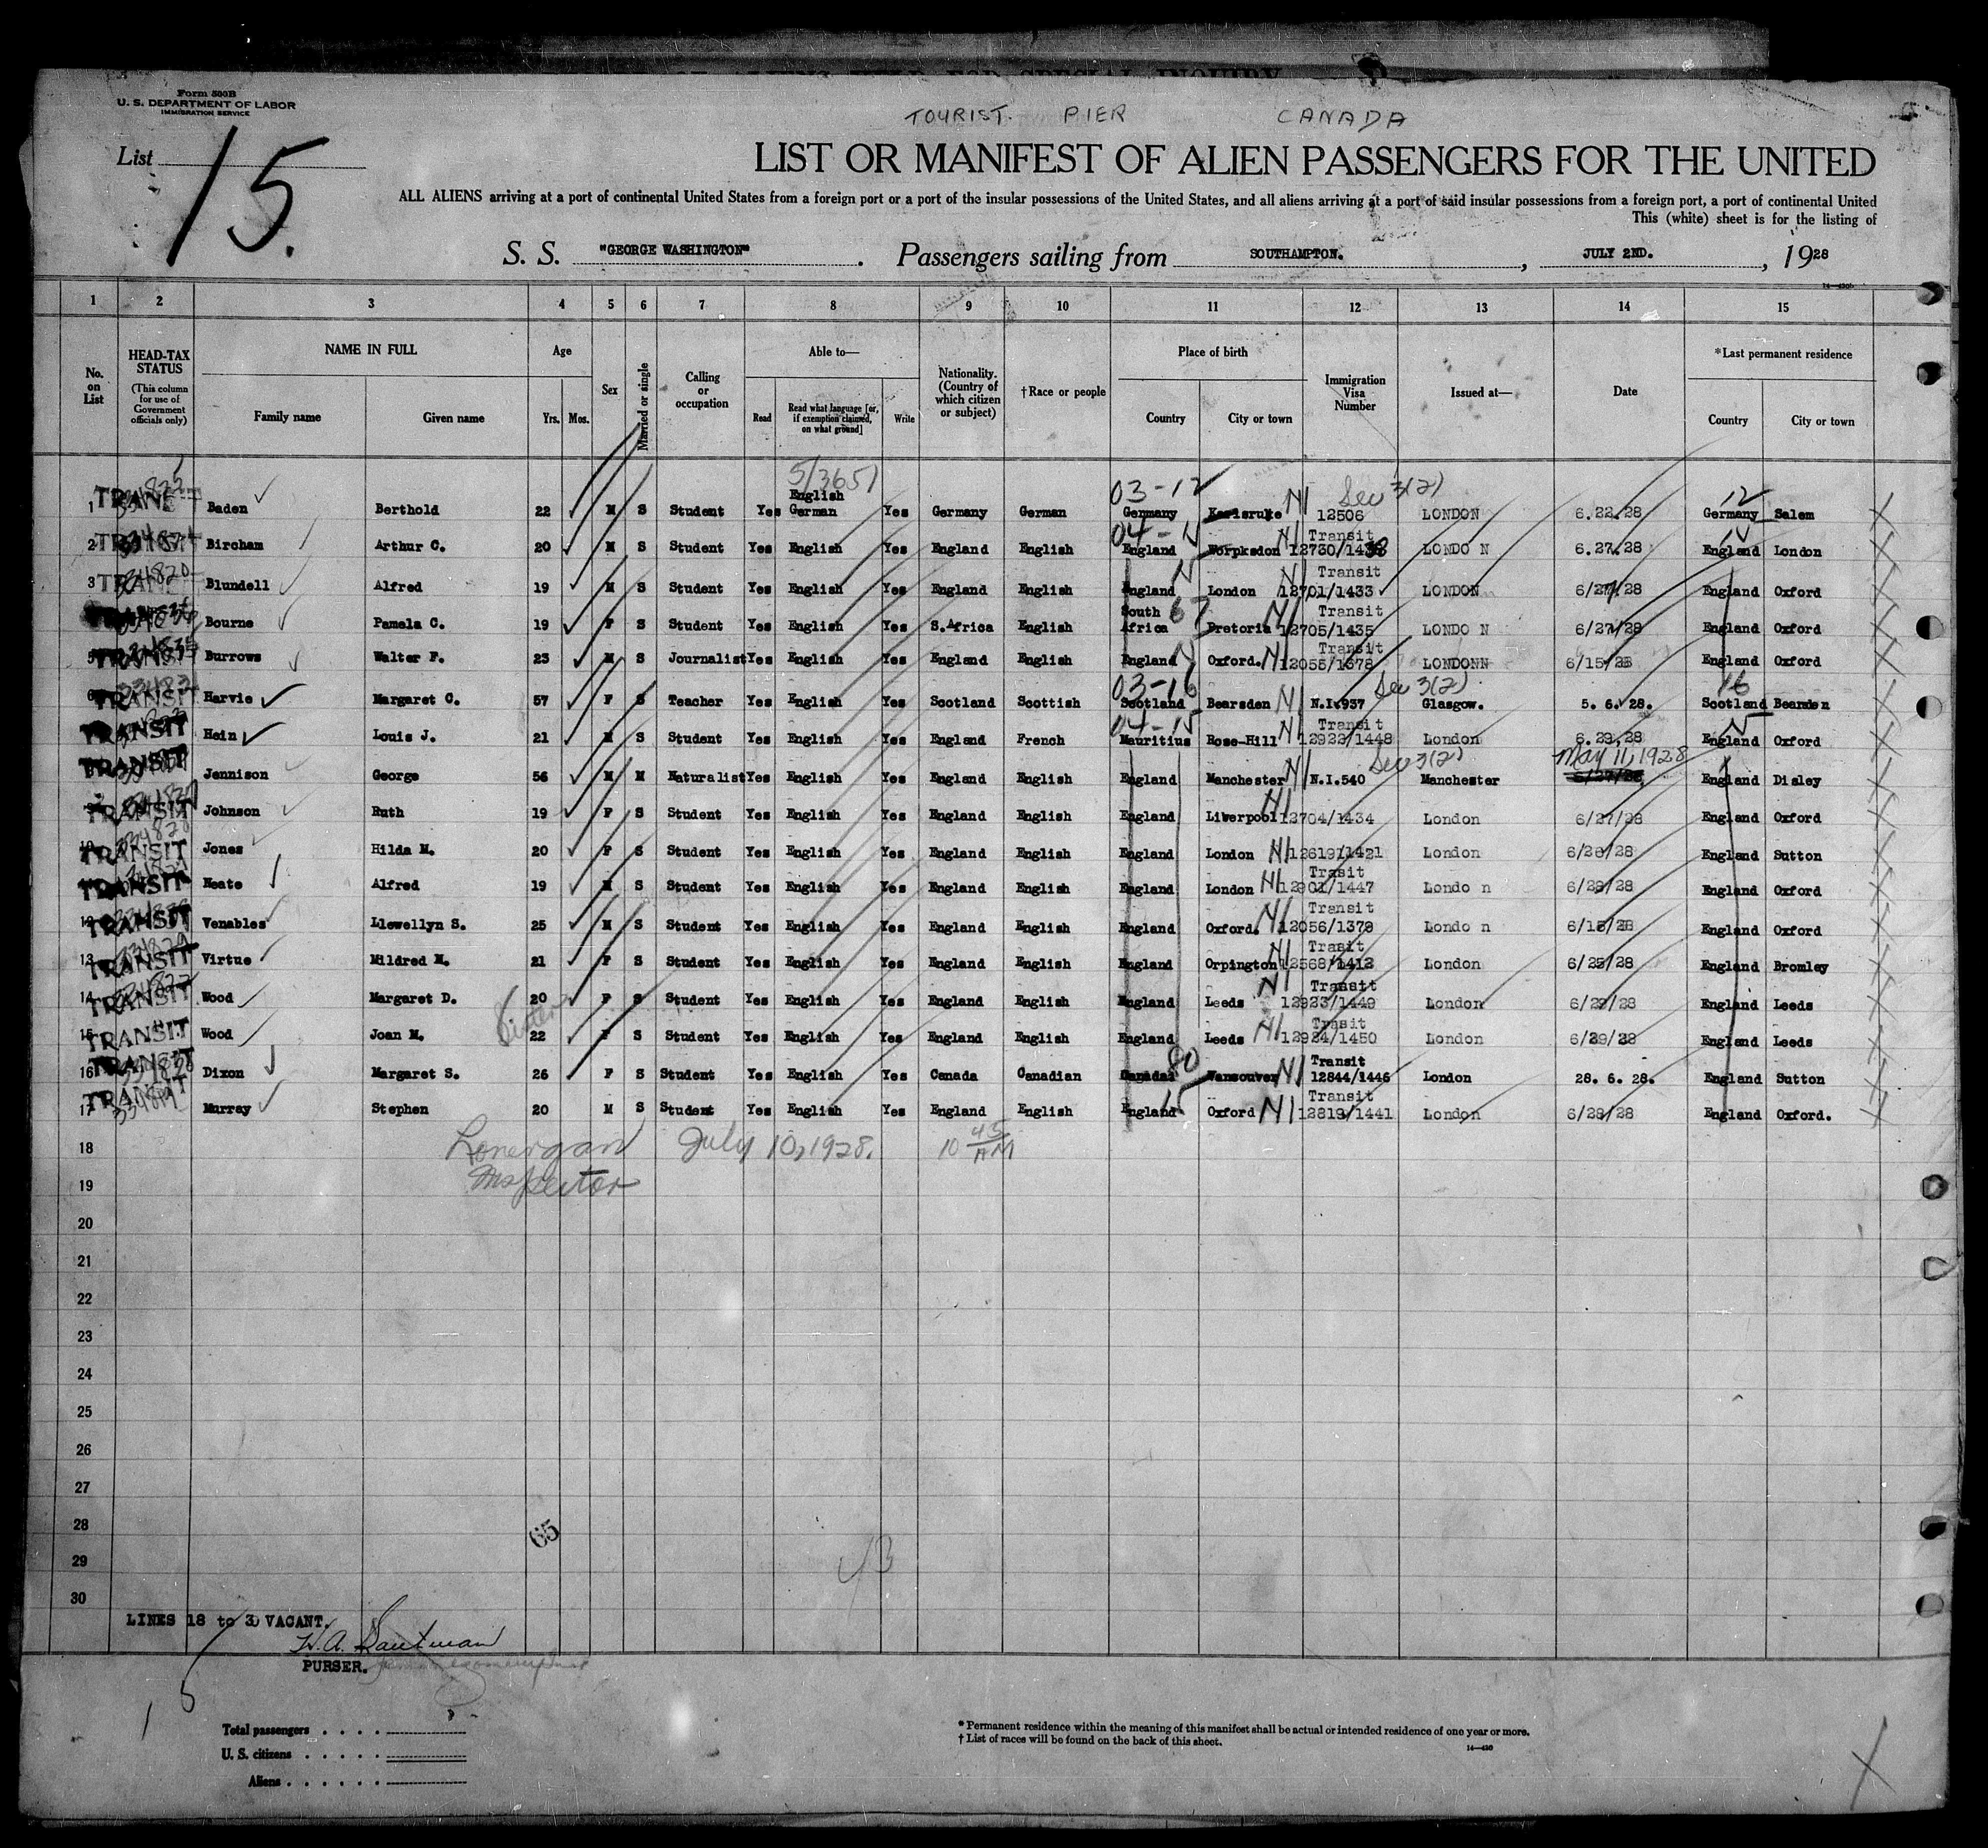 Form 500B
U. S. DEPARTMENT OF LABOR
IMMIGRATION SERVICE
TOURIST. PIER CANADA
List 15.
LIST OR MANIFEST OF ALIEN PASSENGERS FOR THE UNITED
ALL ALIENS arriving at a port of continental United States from a foreign port or a port of the insular possessions of the United States, and all aliens arriving at a port of said insular possessions from a foreign port, a port of continental United
This (white) sheet is for the listing of
S. S. "GEORGE WASHINGTON". Passengers sailing from SOUTHAMPTON., JULY 2ND., 1928
1 2 3 4 5 6 7 8 9 10 11 12 13 14 15
No. on List
HEAD-TAX STATUS
(This column for use of Government officials only)
NAME IN FULL
Family name Given name
Age
Yrs. Mos.
Sex
Married or single
Calling or occupation
Able to—
Read Read what language [or, if exemption claimed, on what ground] Write
Nationality. (Country of which citizen or subject)
†Race or people
Place of birth
Country City or town
Immigration Visa Number
Issued at—
Date
*Last permanent residence
Country City or town
5/3651
03-12 Sec 3(2) 12
English
1 Baden Berthold 22 M S Student Yes German Yes Germany German Germany Karlsruke N1 12506 LONDON 6.22.28 Germany Salem
04-
Transit
2 Bircham Arthur C. 20 M S Student Yes English Yes England English England Worpksdon N1 12730/1438 LONDO N 6.27.28 England London
Transit
3 Blundell Alfred 19 M S Student Yes English Yes England English England London N1 12701/1433 LONDON 6/27/28 England Oxford
South 67 Transit
Bourne Pamela C. 19 F S Student Yes English Yes S.Africa English Africa Pretoria N1 12705/1435 LONDO N 6/27/28 England Oxford
Transit
5 TRANSIT Burrows Walter F. 23 M S Journalist Yes English Yes England English England Oxford. N1 12055/1378 LONDONN 6/15/28 England Oxford
03-16 Sec 3(2) 16
6 TRANSIT Harvie Margaret C. 57 F S Teacher Yes English Yes Scotland Scottish Scotland Bearsden N1 N.I.937 Glasgow. 5. 6. 28. Scotland Bearsden
04-15 Transit
TRANSIT Hein Louis J. 21 M S Student Yes English Yes England French Mauritius Rose-Hill N1 12922/1448 London 6.29.28 England Oxford
Sec 3(2) May 11, 1928
TRANSIT Jennison George 56 M M Naturalist Yes English Yes England English England Manchester N1 N.I.540 Manchester 6/27/28 England Disley
TRANSIT Johnson Ruth 19 F S Student Yes English Yes England English England Liverpool N1 12704/1434 London 6/27/28 England Oxford
10 TRANSIT Jones Hilda M. 20 F S Student Yes English Yes England English England London N1 12619/1421 London 6/26/28 England Sutton
Trasit
TRANSIT Neate Alfred 19 M S Student Yes English Yes England English England London N1 12901/1447 Londo n 6/29/28 England Oxford
Transit
12 TRANSIT Venables Llewellyn S. 25 M S Student Yes English Yes England English England Oxford. N1 12056/1379 Londo n 6/15/28 England Oxford
Trasit
13 TRANSIT Virtue Mildred M. 21 F S Student Yes English Yes England English England Orpington N1 12568/1412 London 6/25/28 England Bromley
Transit
14 TRANSIT Wood Margaret D. 20 F S Student Yes English Yes England English England Leeds N1 12923/1449 London 6/29/28 England Leeds
Sisters
Trasit
15 TRANSIT Wood Joan M. 22 F S Student Yes English Yes England English England Leeds N1 12924/1450 London 6/29/28 England Leeds
80 Transit
16 TRANSIT Dixon Margaret S. 26 F S Student Yes English Yes Canada Canadian Canada Vancouver N1 12844/1446 London 28. 6. 28. England Sutton
15 Transit
17 TRANSIT Murray Stephen 20 M S Student Yes English Yes England English England Oxford N1 12819/1441 London 6/28/28 England Oxford.
18 Lonergan July 10, 1928. 10 45 AM
19 Inspector
20
21
22
23
24
25
26
27
28 65
29
30
LINES 18 to 30 VACANT.
PURSER.
15
Total passengers . . . .
U. S. citizens . . . . .
Aliens . . . . . .
*Permanent residence within the meaning of this manifest shall be actual or intended residence of one year or more.
†List of races will be found on the back of this sheet.
14—420